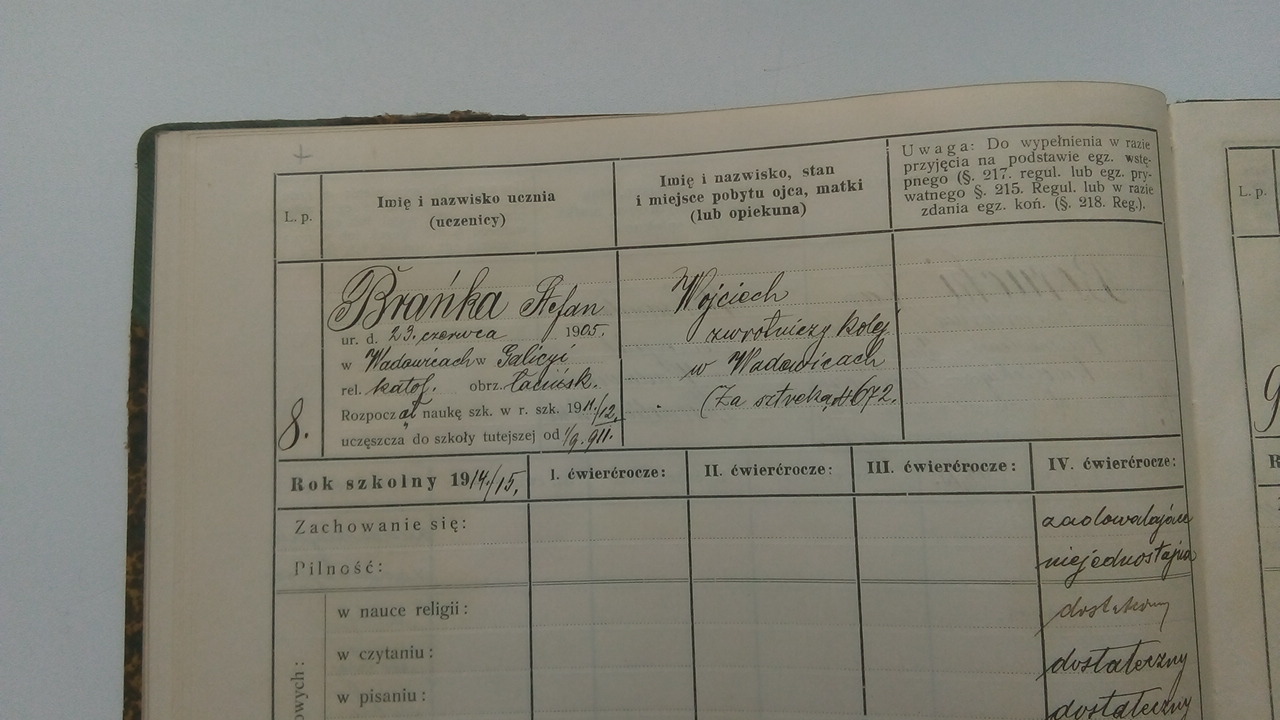 L. p.
Imię i nazwisko ucznia
(uczenicy)
Imię i nazwisko, stan
i miejsce pobytu ojca, matki
(lub opiekuna)
Uwaga: Do wypełnienia w razie
przyjęcia na podstawie egz. wstę-
pnego (§. 217. regul. lub egz. pry-
watnego §. 215. Regul. lub w razie
zdania egz. koń. (§. 218. Reg.).
L. p.
8.
Brańka Stefan
ur. d. 23. czerwca 1905.
w Wadowicach w Galicyi
rel. katol. obrz. łacińsk.
Rozpoczął naukę szk. w r. szk. 1911/12.
uczęszcza do szkoły tutejszej od 1/9. 911.
Wojciech
zwrotniczy kolej
w Wadowicach
(Za 672.
Rok szkolny 1914/15.
I. ćwierćrocze:
II. ćwierćrocze:
III. ćwierćrocze:
IV. ćwierćrocze:
Zachowanie się:
zadowalające
Pilność:
niejednostajna
w nauce religii:
dostateczny
w czytaniu:
dostateczny
w pisaniu:
dostateczny
owych: